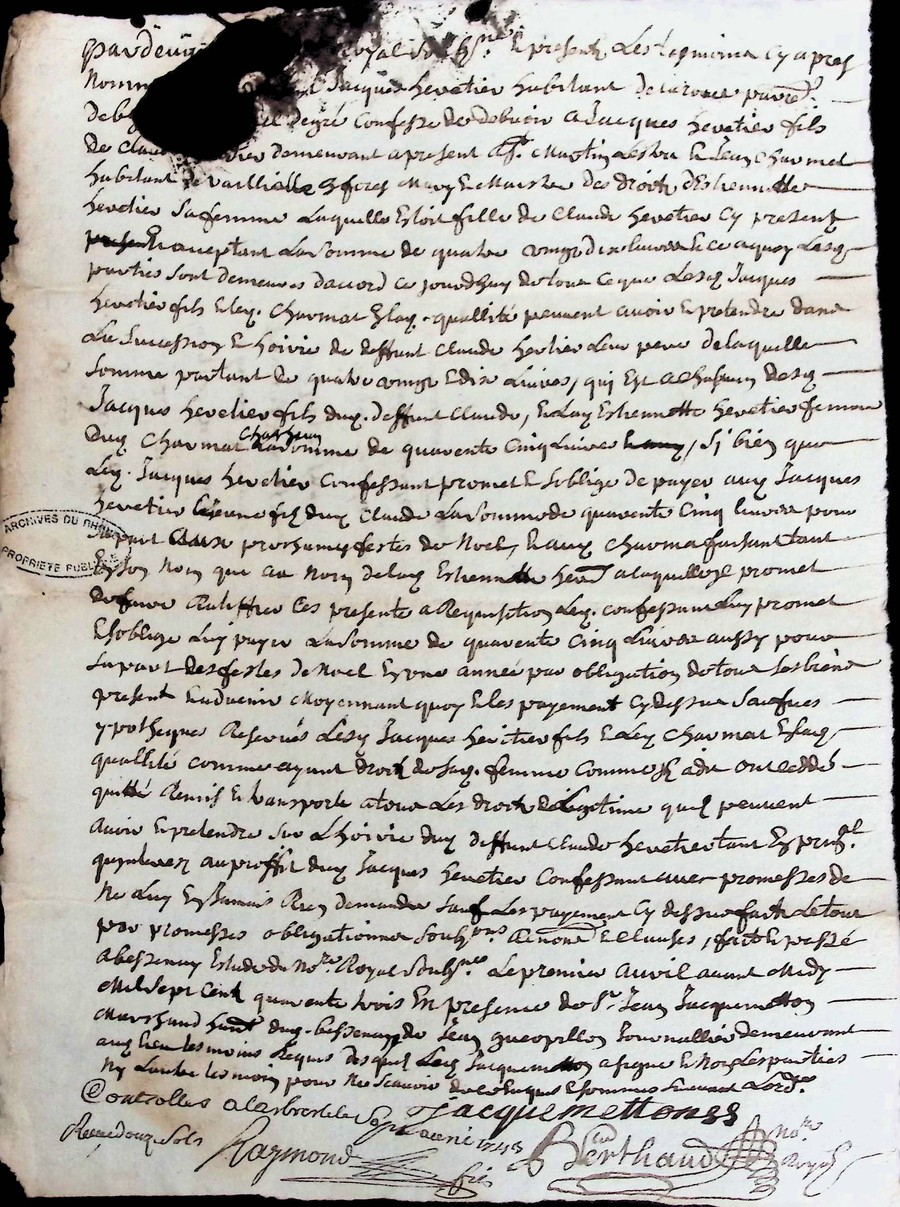 Pardevant royal sousné present, Les tesmoins Cy apres
Nomm Jacques hevetier habitant
de gré Confesse de debvoir a Jacques hevetier fils
de Clau demeurant apresent a St. Martin Lestra Et Jean Charmet
habitant de Mary Et Maistre des droits dEstiennette
hevetier Safemme Laquelle Estoit fille de Claude hevetier Cy present
Et acceptant La Somme de quatre vingt dix livres
parties Sont demeurés daccord ce jourdhuy de tout ce que Lesq Jacques
hevetier fils Et Leq. Charmet Esaq. quallité peuvent avoir Et pretendre dans
La Succession Et hoirie de deffunt Claude hevetier Leur pere de laquelle
Somme partant de quatre vingt Et dix Livres, qui Est a Chascun desq
Jacques hevetier fils duq. deffunt Claude, Et Laq Estiennette hevetier femme
Duq Charmet Chascun La Somme de quarente Cinq Livres, Si bien que
Leq. Jacques hevetier Confessant promet Et Soblige de payer auq Jacques
hevetier fils duq Claude La Somme de quarente Cinq livres pour
Sa part aux prochaines festes de Noel, Et auq Charmet faisant tant
En Son Nom que au Nom de laq Estiennette a laquelle Il promet
de faire Ratiffier Ces presente a Requisition Leq. confessant Luy promet
Et Soblige Luy payer La Somme de quarente Cinq Livres aussy pour
Sa part des festes de Noel En une année par obligation de tous Ses biens
present Et advenir Moyennant quoy Et Les payement Cy dessus Sauf Ses
ypotheques Reservés Lesq Jacques hevetier fils Et Leq Charmet Esaq
quallité comme ayant droit de Saq. femme Comme Il a dit ont cedde
quitté Remis Et transporté a tous Les droits de Legitime quils peuvent
avoir Et pretendre Sur Lhoirie duq deffunt Claude hevetier tant En prinal
quinterest au proffit duq Jacques hevetier Confessant avec promesses de
Ne Luy En Jamais Rien demander Sauf Les payement Cy dessus fait Le tout
par promesses obligations Soubons Renons Et Clauses, fait Et passé
a bessenay Estude du Nore Royal Soubsné Le premier avril avant Midy
Mil Sept Cent quarente trois En presence de Sr Jean Jacquemetton
Marchand habnt duq. bessenay Et de Jean Journallier demeurant
auq Lieu tesmoins Requis desquels Leq Jacquemetton a signe Et Non Les parties
Ny Lautre tesmoin pour Ne Scavoir de ce Enquis Et Sommes Suivant Lordce
Controllé a Larbresle Le Sept avril 1743 Jacquemettonss
Receu douze Sols Raymond fils Berthaud Nore Royal
ARCHIVES DU RHÔNE
PROPRIETE PUBLIQUE